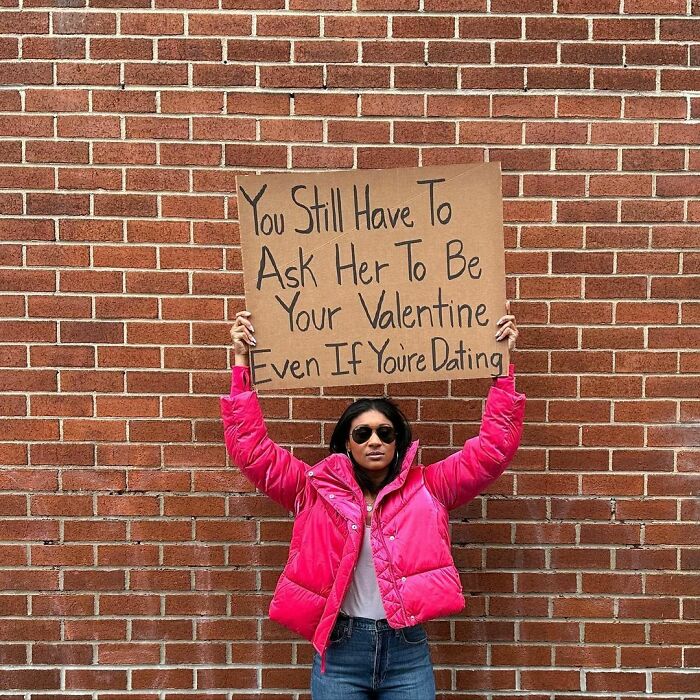 You Still Have To
Ask Her To Be
Your Valentine
Even If You're Dating